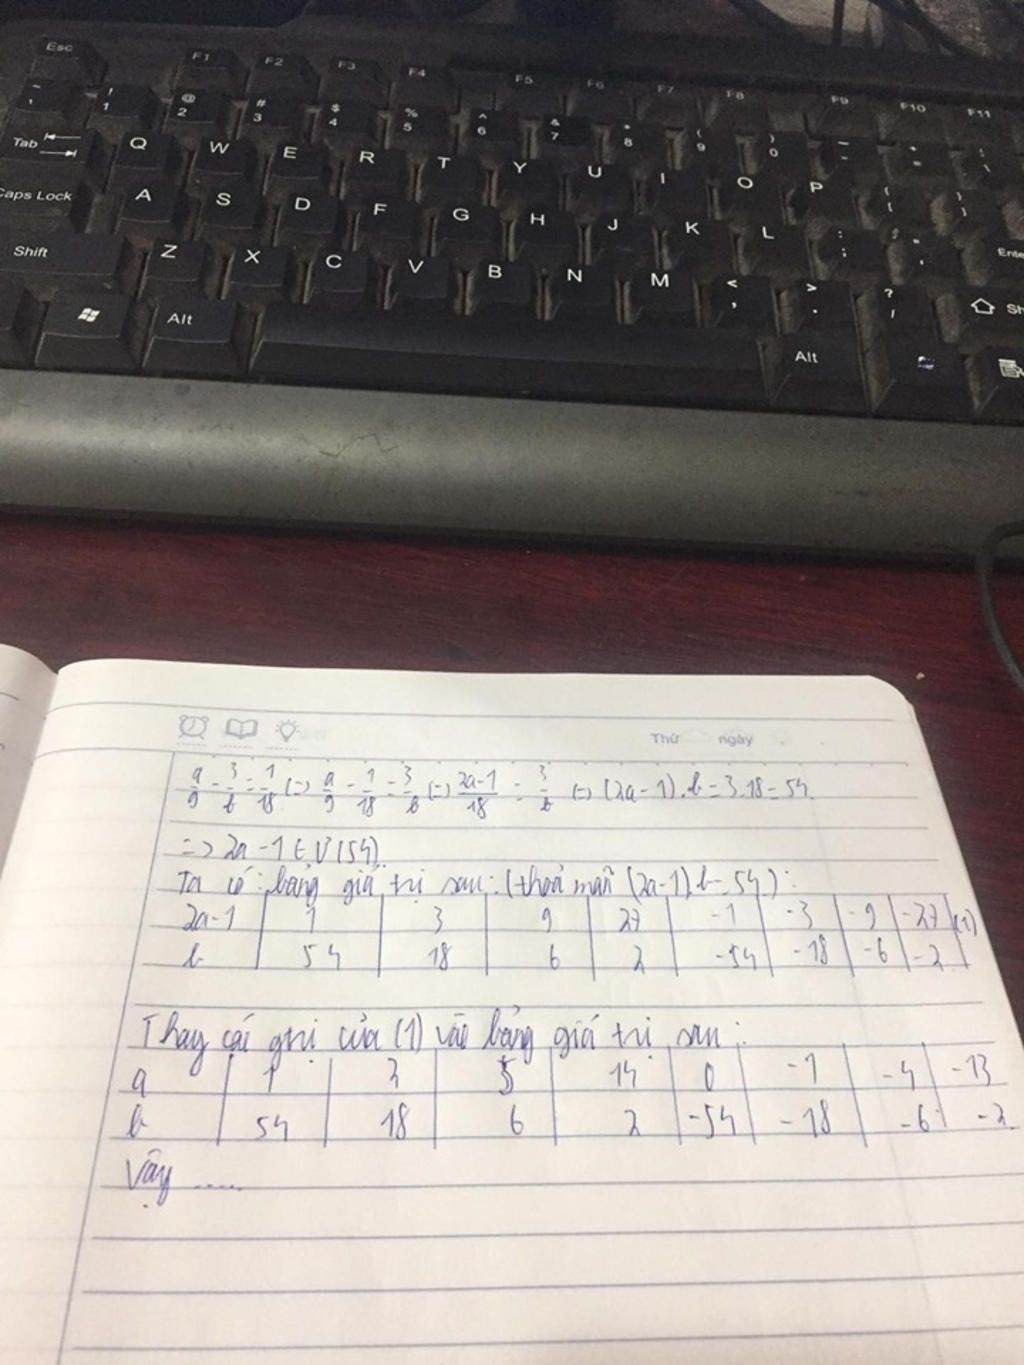 Esc F1 F2 F3 F4 F5 F6 F7 F8 F9 F10 F11
~ ! 1 @ 2 # 3 $ 4 % 5 ^ 6 & 7 * 8 ( 9 ) 0
Tab Q W E R T Y U I O P
Caps Lock A S D F G H J K L : ;
Shift Z X C V B N M < , > . ? /
Alt Alt
Thứ ngày
a/9 - 3/b = 1/18 (=) a/9 - 1/18 = 3/b (=) 2a-1/18 = 3/b (=) (2a-1).b = 3.18 = 54.
=> 2a-1 ∈ Ư(54)
Ta có: bảng giá trị sau: (thoả mãn (2a-1).b = 54):
2a-1 1 3 9 27 -1 -3 -9 -27 (1)
b 54 18 6 2 -54 -18 -6 -2
Thay các gtrị của (1) vào bảng giá trị sau:
a 1 2 5 14 0 -1 -4 -13
b 54 18 6 2 -54 -18 -6 -2
Vậy .....